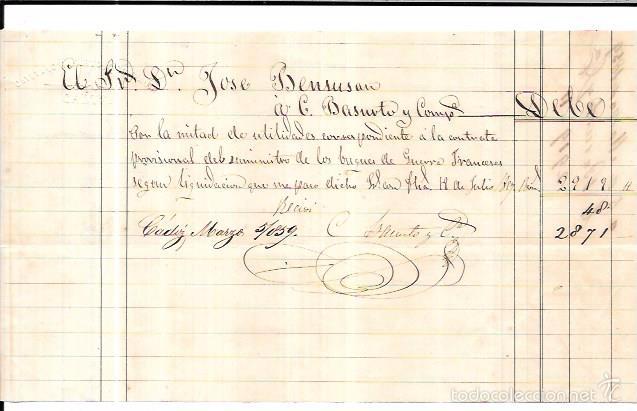 El Sr. Dn. Jose Bensusan
á C. Basurto y Compa. Debe
Por la mitad de utilidades correspondiente á la contrata
provisional del suministro de los buques de Guerra Franceses
segun liquidacion que me paso dicho Sr. con fha. 12 de Julio
48
Recivi
Cádiz Marzo 5/859. C Basurto y Ca. 2871
todocoleccion